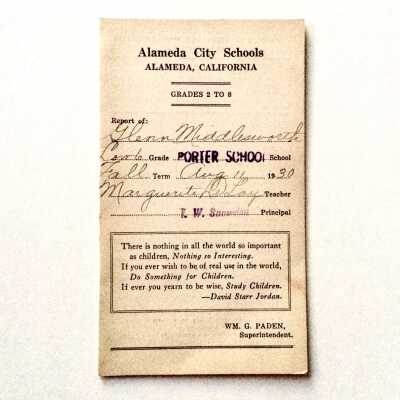 Alameda City Schools
ALAMEDA, CALIFORNIA
GRADES 2 TO 8
Report of:
Glenn Middlesworth
Low 6 Grade PORTER SCHOOL School
Fall Term Aug 11 1930
Marguerite De Loy Teacher
T. W. Principal
There is nothing in all the world so important
as children, Nothing so Interesting.
If you ever wish to be of real use in the world,
Do Something for Children.
If ever you yearn to be wise, Study Children.
—David Starr Jordan.
WM. G. PADEN,
Superintendent.